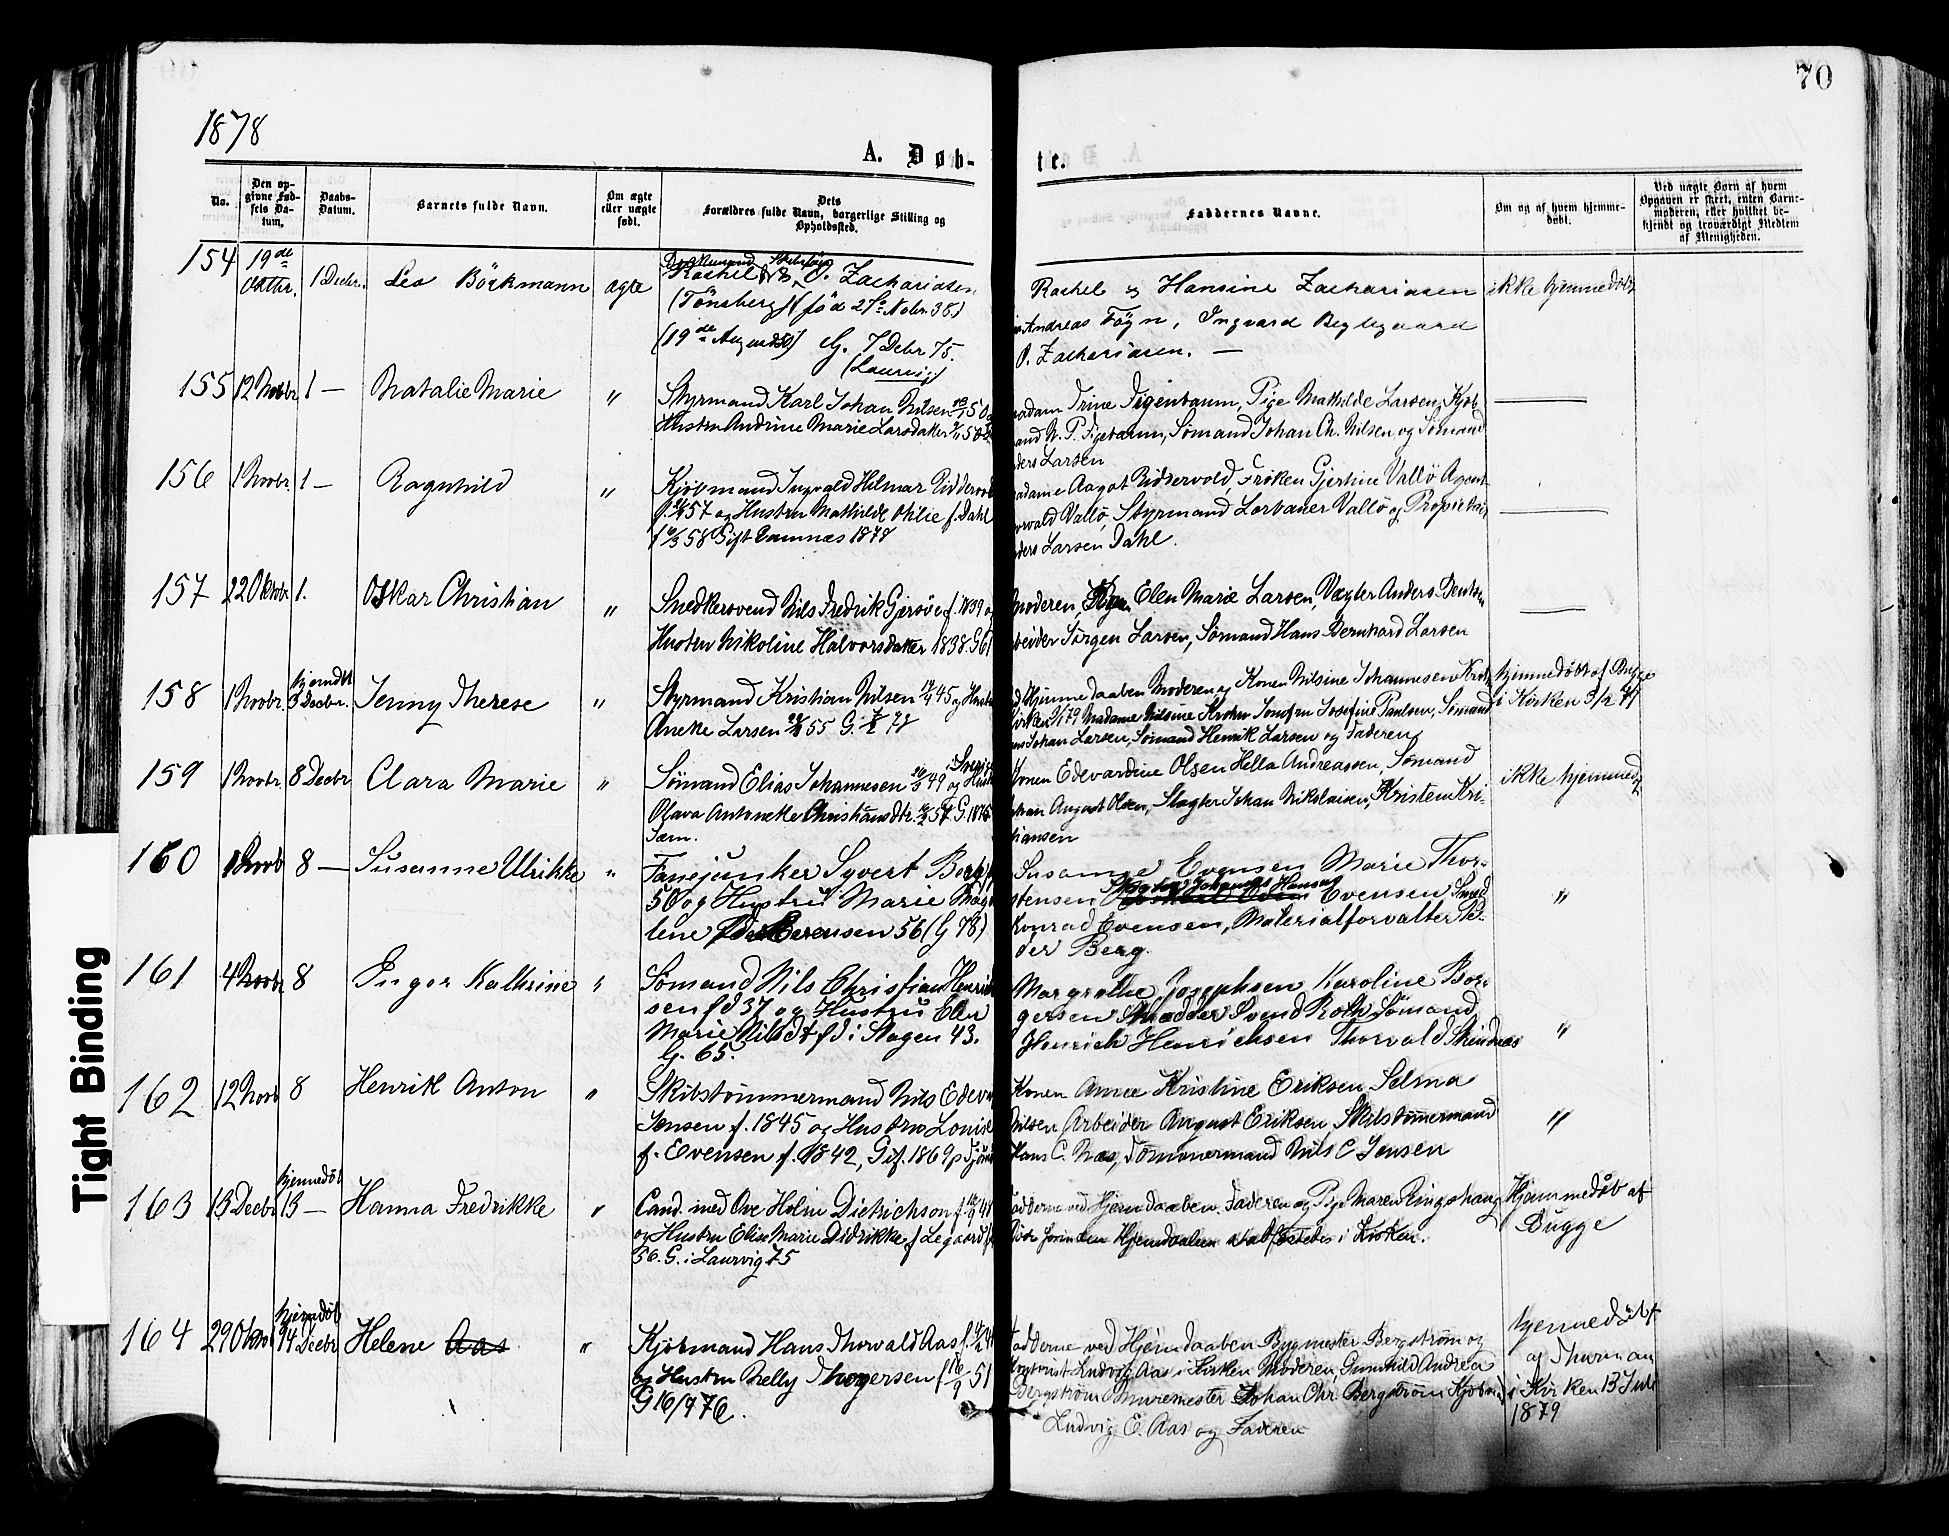 70
1878
A. Døb-
te.
No.
Den op-
givne Fød-
sels Da-
tum.
Daabs-
Datum.
Barnets fulde Navn.
Om ægte
eller uægte
født.
Dets
Forældres fulde Navn, borgerlige Stilling og
Opholdssted.
Faddernes Navne.
Om og af hvem hjemme-
døbt.
Ved uægte Børn af hvem
Opgaven er skeet, enten Barne-
moderen, eller hvilket be-
kjendt og troværdigt Medlem
af Menigheden.
154 19de Oktbr. 1 Decbr. Leo Börkmann ægte
Rachel O. Zachariasen
(Tönsberg) (fød 21 Nobr. 38)
(19de August) G. 7 Debr 75.
(Laurvig)
Rachel & Hansine Zachariasen
Andreas Föyn, Ingvard Bryllegaard
O. Zachariasen. —
ikke hjemmedøbt
155 12 Novbr 1 — Natalie Marie "
Styrmand Karl Johan Nilsen 50
Hustru Andrine Marie Larsdatter
Madam Trine Figenbaum, Pige Mathilde Larsen, Kjøb-
mand N. P. Figenbaum, Sømand Johan Ch. Nilsen og Sømand
Larsen
156 1 Novbr. 1 — Ragnhild "
Kjøbmand Ingvald Hilmar Riddervold
57 og Hustru Mathilde Othilie f. Dahl
58 Gift Ramnæs 1878
Madame Aagot Riddervold, Frøken Gjertine Vallø Agent
Vallø, Styrmand Vallø og Proprietær
Larsen Dahl.
157 22 Oktobr. 1. Oskar Christian "
Snedkersvend Nils Fredrik Gjersøe f. 1839 og
Hustru Nikoline Halvorsdatter 1838. G 61
Moderen, Pige Elen Marie Larsen, Vægter Anders Bentsen
Arbeider Jørgen Larsen, Sømand Hans Bernhard Larsen
158 1 Novbr. hjemdbt 3 Decbr. Jenny Therese "
Styrmand Kristian Nilsen 45 og Hustru
Aneke Larsen 55 G. 78
Ved Hjemmedaaben Moderen og Konen Nilsine Johannesen
Kirken 79 Madame Nilsine Jomfru Josefine Paulsen, Sømand
Johan Larsen, Sømand Henrik Larsen og Faderen
hjemmedøbt af Bugge
i Kirken
159 1 Novbr. 8 Decbr Clara Marie "
Sømand Elias Johannesen 49 og Hustru
Olava Antoneke Christiansdtr. 57 G. 1876
Sem.
Konen Edevardine Olsen Hella Andreassen, Sømand
Johan August Olsen, Slagter Johan Nikolaisen, Kristen Kri-
stiansen
ikke hjemmed
160 1 Novb 8 — Susanne Ulrikke "
Fanejunker Syvert Berg
50 og Hustru Marie Mag
lene Evensen 56 (G 78)
Susanne Evensen Marie Thor-
stensen Slagter Johannes Hansen Evensen Smed
Konrad Evensen, Materialforvalter Pe-
der Berg.
"
161 4 Novbr 8 Inger Kathrine "
Sømand Nils Christian Henrik
sen fd 37 og Hustru Elen
Marie Nilsdt fd i Slagen 43.
G. 65.
Margrethe Josephsen Karoline Bor-
gersen Skrædder Svend Roth Sømand
Henrich Henrichsen Thorvald Skindnæs
"
162 12 Novb 8 Henrik Anton "
Skibstømmermand Nils Edev
Jensen f. 1845 og Hustru Louise
f. Evensen f. 1842, Gif. 1869 p Tjømø
Konen Anne Kristine Eriksen Selma
Nilsen Arbeider August Eriksen Skibstømmermand
Hans C. Næs, Tømmermand Nils C Jensen
"
163 13 Decbr hjemmedøb 13 — Hanna Fredrikke "
Cand. med Ove Holm Dietrichson
og Hustru Elise Marie Didrikke f Legaard
56. G. i Laurvig 75
Fadderne ved Hjemdaaben, Faderen og Pige Maren Ringshaug
Hjemdaaben stadfæstedes i Kirken.
Hjemmedøb af
Bugge
164 29 Oktb hjemdøb 14 Decbr Helene Aas "
Kjøbmand Hans Thorvald Aas
og Hustru Nelly Thorgersen f 16/9 51
G 16/9 76.
Fadderne ved Hjemdaaben Bygmester Bergstrøm og
Ludvig Aas i Kirken Moderen, Gunhild Andrea
Bergstrøm Muremester Johan Chr. Bergstrøm Kjøbmd
Ludvig E. Aas og Faderen
hjemmedøbt
af Thurman
i Kirken 13 Juli
1879
Tight Binding